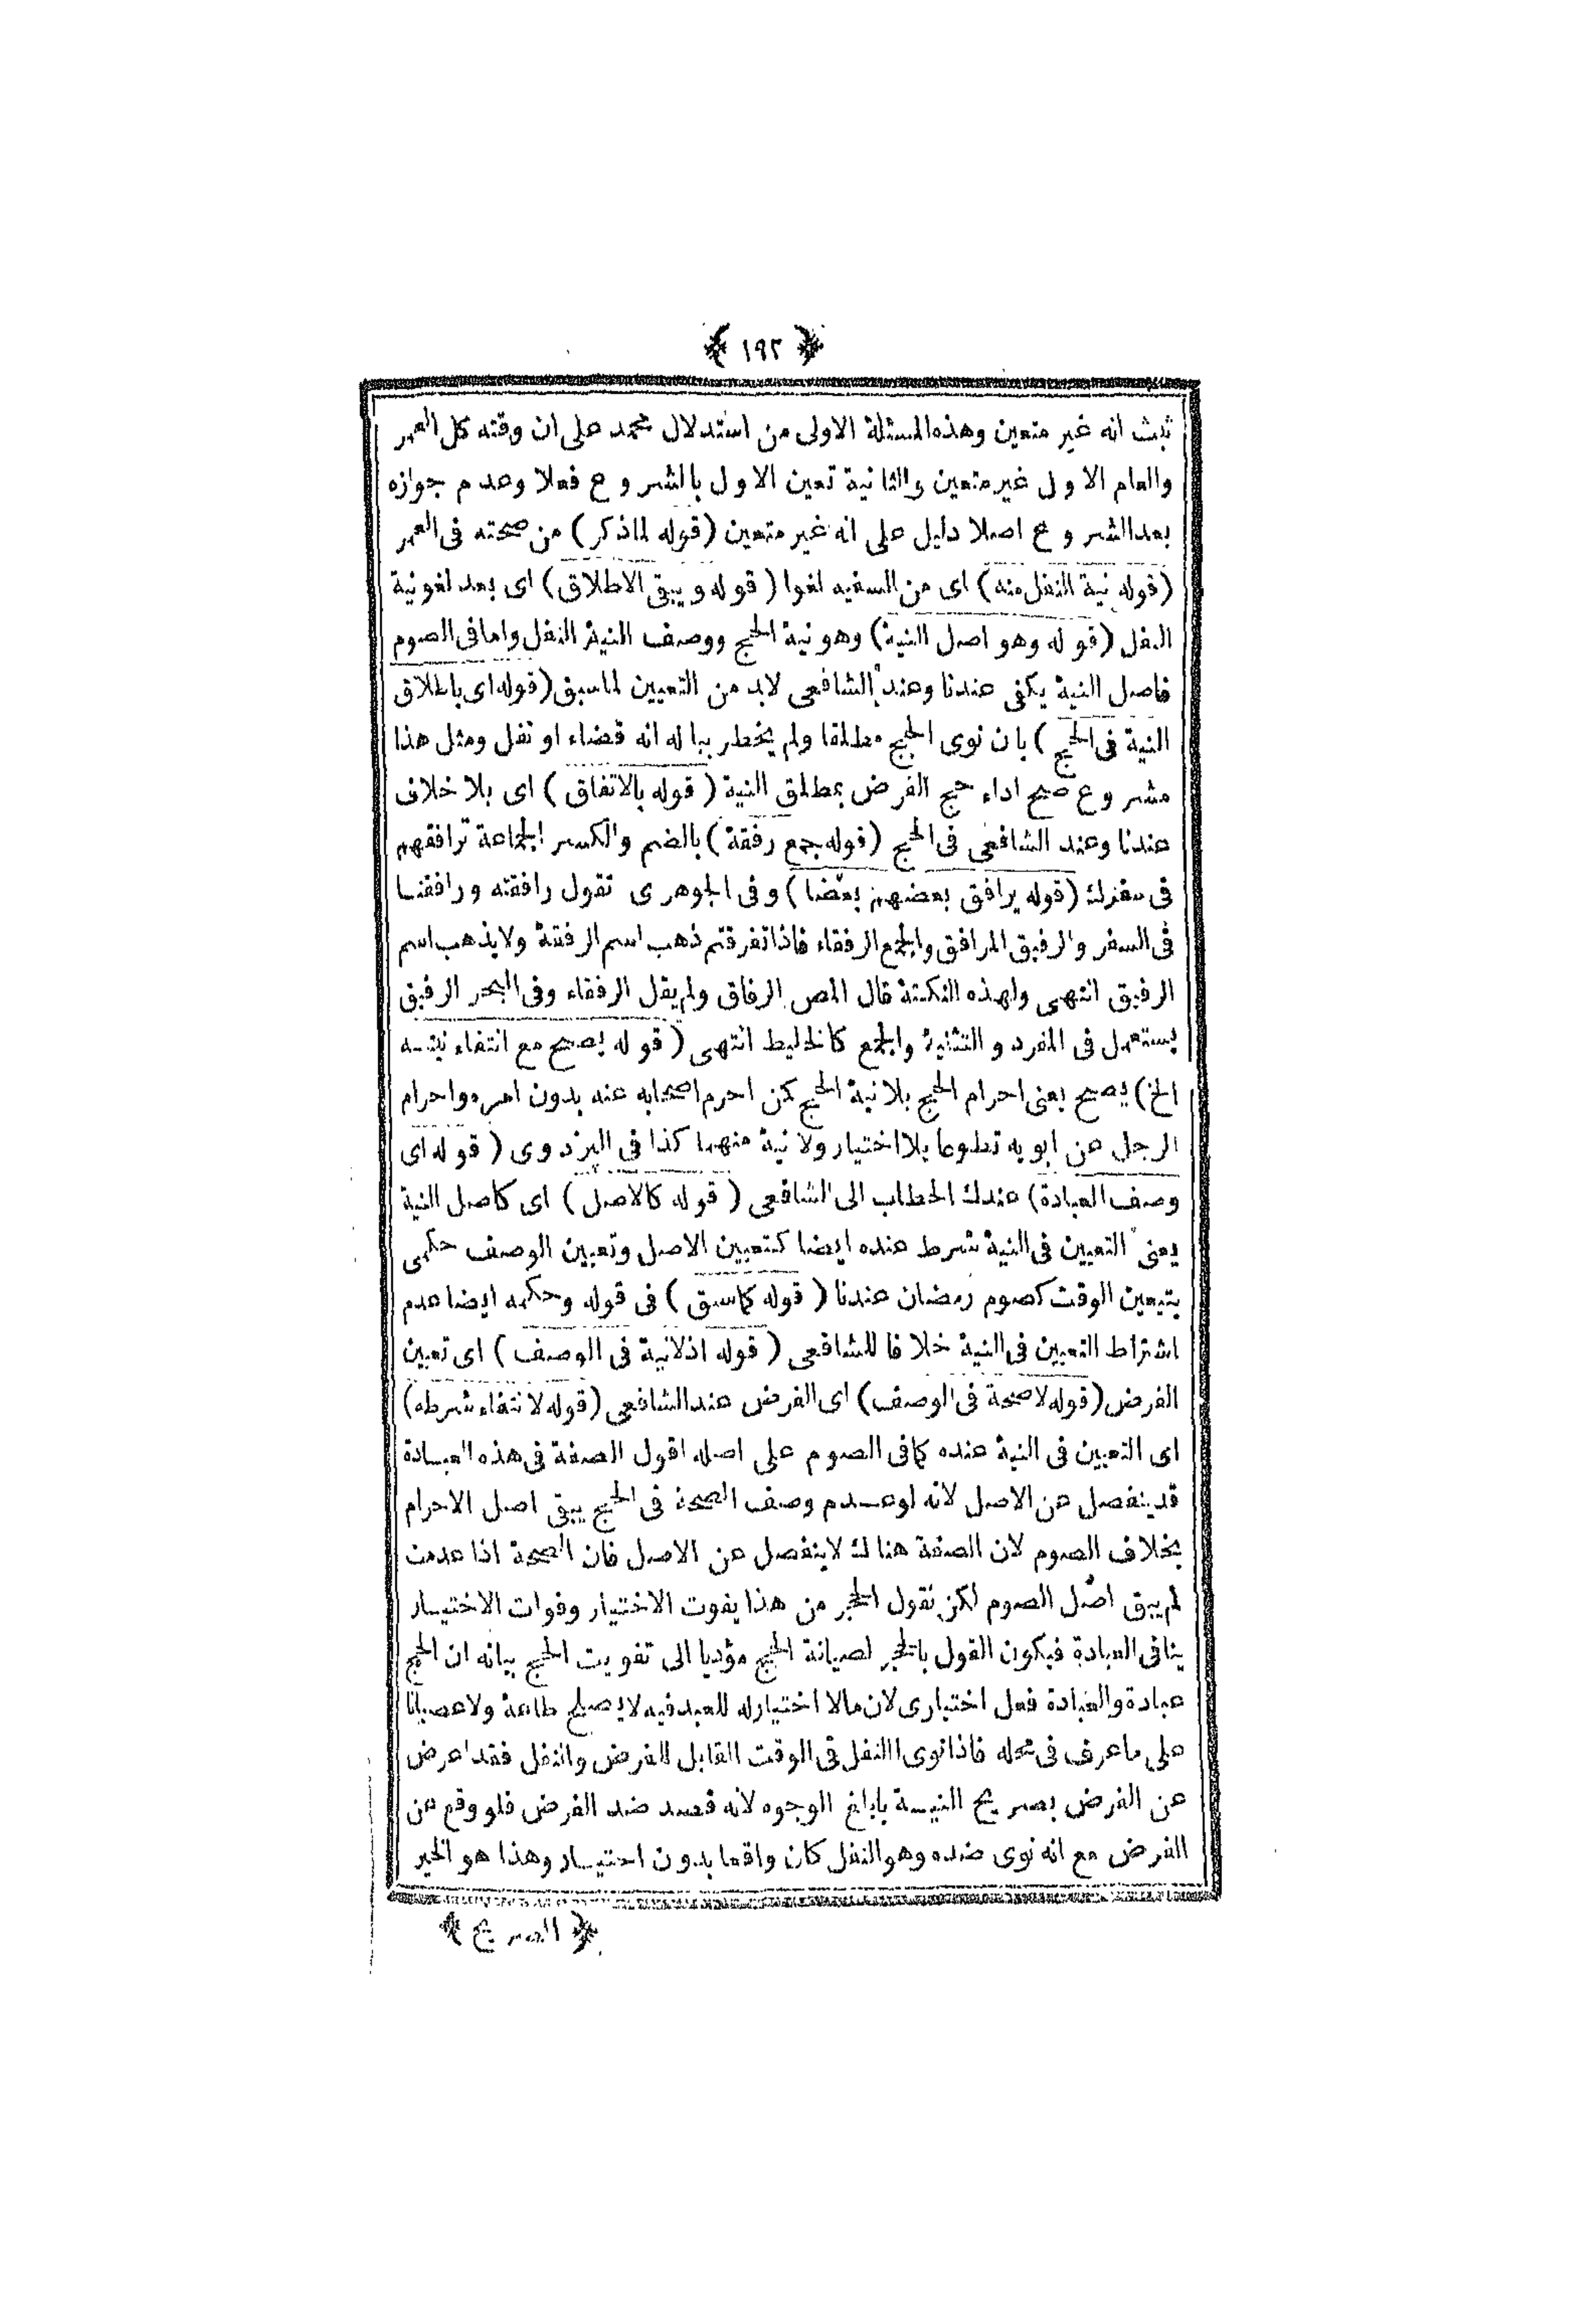 ﴿ ١٩٢ ﴾
ثبت انه غير متعين وهذه المسئلة الاولى من استدلال محمد على ان وقته كل العمر
والعام الاول غير متعين والثانية تعين الاول بالشروع فعلا وعدم جوازه
بعد الشروع اصلا دليل على انه غير متعين (قوله لما ذكر) من صحته فى العمر
(قوله نية النفل منه) اى من السفيه لغوا (قوله ويبقى الاطلاق) اى بعد لغو نية
النفل (قوله وهو اصل النية) وهو نية الحج ووصف النية النفل واما فى الصوم
فاصل النية يكفى عندنا وعند الشافعى لابد من التعيين لما سبق (قوله اى باطلاق
النية فى الحج) بان نوى الحج مطلقا ولم يخطر بباله انه قضاء او نفل ومثل هذا
مشروع صحيح اداء حج الفرض بمطلق النية (قوله بالاتفاق) اى بلا خلاف
عندنا وعند الشافعى فى الحج (قوله جمع رفقة) بالضم والكسر الجماعة ترافقهم
فى سفرك (قوله يرافق بعضهم بعضا) وفى الجوهرى تقول رافقته ورافقنا
فى السفر والرفيق المرافق والجمع الرفقاء فاذا تفرقتم ذهب اسم الرفقة ولا يذهب اسم
الرفيق انتهى ولهذه النكتة قال المص الرفاق ولم يقل الرفقاء وفى البحر الرفيق
يستعمل فى المفرد والتثنية والجمع كالخليط انتهى (قوله يصح مع انتفاء نيته
الخ) يصح يعنى احرام الحج بلا نية الحج كمن احرم اصحابه عنه بدون امره واحرام
الرجل عن ابويه تطوعا بلا اختيار ولا نية منهما كذا فى البزدوى (قوله اى
وصف العبادة) عندك الخطاب الى الشافعى (قوله كالاصل) اى كاصل النية
يعنى التعيين فى النية شرط عنده ايضا كتعيين الاصل وتعيين الوصف حكمى
بتعيين الوقت كصوم رمضان عندنا (قوله كما سبق) فى قوله وحكمه ايضا عدم
اشتراط التعيين فى النية خلافا للشافعى (قوله اذ لانية فى الوصف) اى تعيين
الفرض (قوله لا صحة فى الوصف) اى الفرض عند الشافعى (قوله لانتفاء شرطه)
اى التعيين فى النية عنده كما فى الصوم على اصله اقول الصفة فى هذه العبادة
قد ينفصل عن الاصل لانه لو عدم وصف الصحة فى الحج يبقى اصل الاحرام
بخلاف الصوم لان الصفة هناك لا ينفصل عن الاصل فان الصحة اذا عدمت
لم يبق اصل الصوم لكن نقول الحجر من هذا يفوت الاختيار وفوات الاختيار
ينافى العبادة فيكون القول بالحجر لصيانة الحج مؤديا الى تفويت الحج بيانه ان الحج
عبادة والعبادة فعل اختيارى لان مالا اختيار له للعبد فيه لا يصلح طاعة ولا عصيانا
على ما عرف فى محله فاذا نوى النفل فى الوقت القابل للفرض والنفل فقد اعرض
عن الفرض بصريح النية بابلغ الوجوه لانه قصد ضد الفرض فلو وقع عن
الفرض مع انه نوى ضده وهو النفل كان واقعا بدون اختيار وهذا هو الخبر
﴿ الصريح ﴾